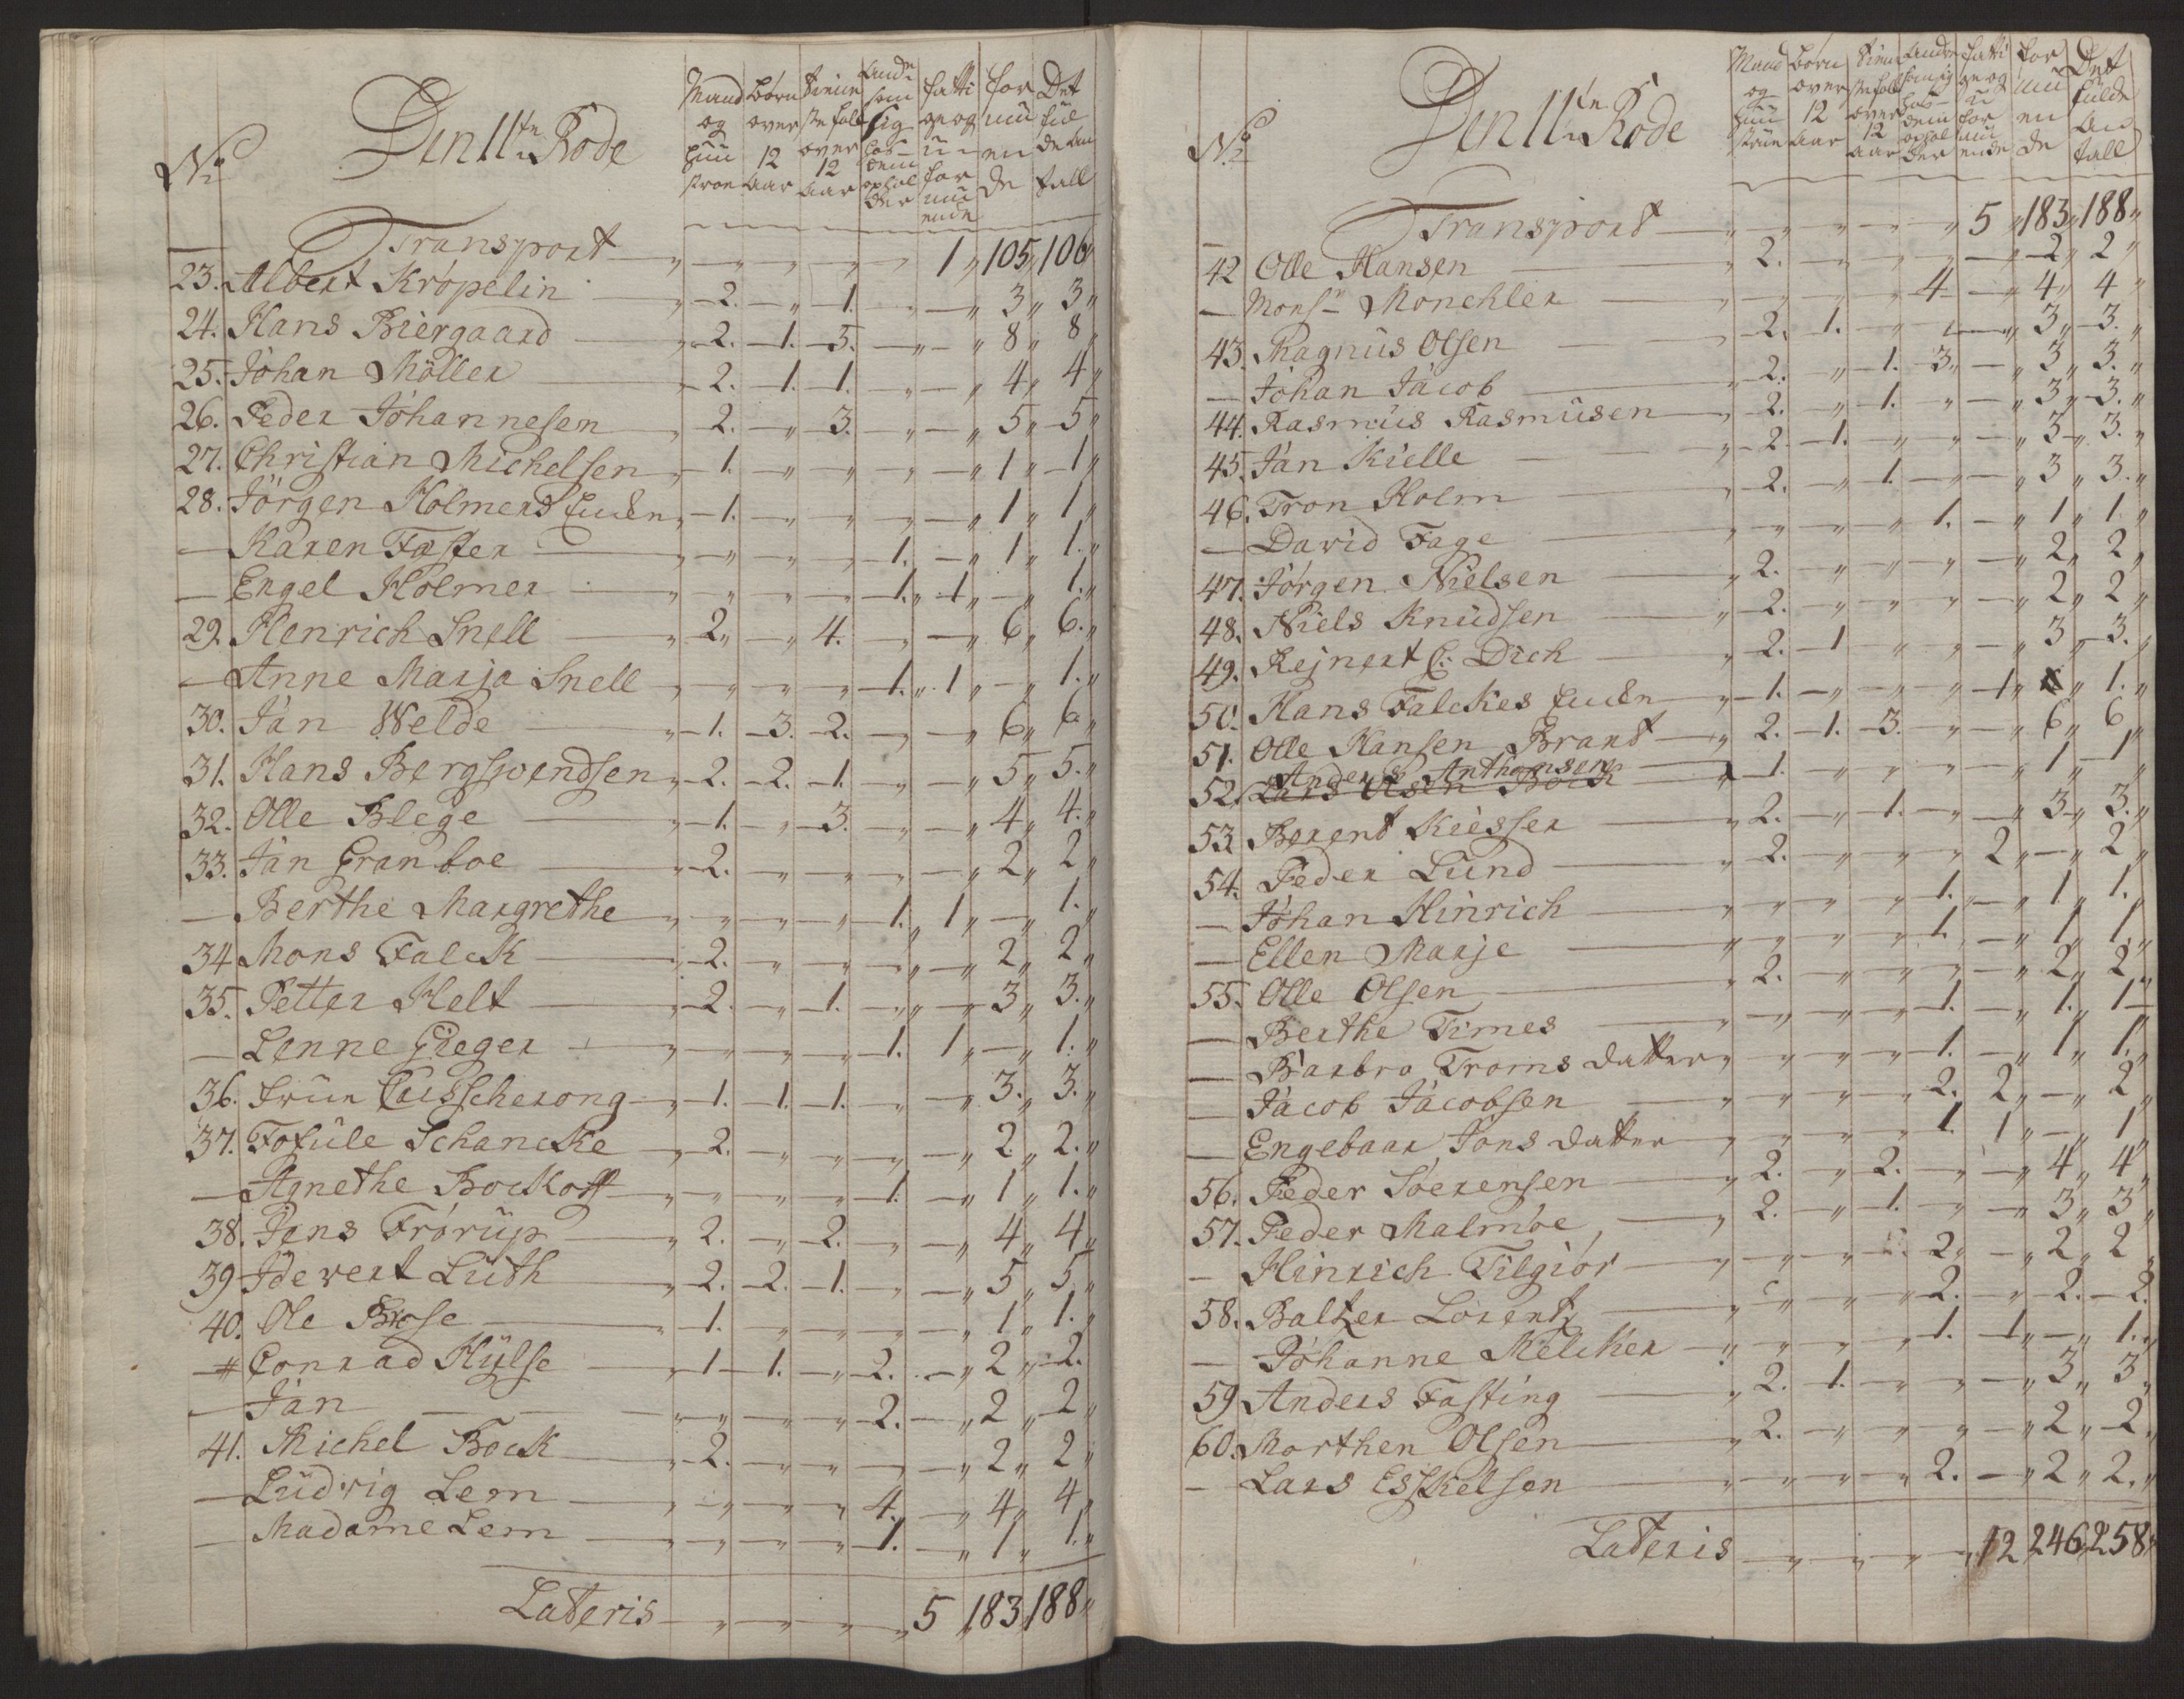 No
Den 11te Rode
Mand og Huustroe
Børn over 12 Aar
Tienneste folk over 12 Aar
Andr som sig hos dem opholder
Fatti ge og u formuende
For mu en de
Det ful de An tall
Transport — „ — „ — „ — „ — 1 „ 105 „ 106 „
23. Albert Kröpelin — „ 2. — „ 1. „ — „ 3 „ 3 „
24. Hans Biergaard — „ 2. 1. 5. — „ — „ 8 „ 8 „
25. Johan Möller — „ 2. 1. 1. „ — „ 4 „ 4 „
26. Peder Johannesen „ 2. — „ 3. — „ — „ 5 „ 5 „
27. Christian Michelsen „ 1. — „ — „ — „ — „ 1 „ 1 „
28. Jörgen Holmers Enken „ 1. — „ — „ — „ — „ 1 „ 1 „
— Karen Faster — „ — „ — „ — „ 1. — „ 1 „ 1. „
— Engel Holmer — „ — „ — „ — „ 1. „ 1 „ — „ 1. „
29. Henrich Snell — „ 2 „ — „ 4. — „ — „ 6 „ 6. „
— Anne Marja Snell — „ — „ — „ — „ 1. „ 1 „ — „ 1. „
30. Jan Welde — „ 1. 3. 2. — „ — „ 6 „ 6 „
31. Hans Bergswendsen „ 2. 2. 1. — „ — „ 5 „ 5. „
32. Olle Blege — „ 1. — „ 3. — „ — „ 4 „ 4. „
33. Jan Granboe — „ 2. — „ — „ — „ — „ 2 „ 2 „
— Berthe Margrethe — „ — „ — „ — „ 1. „ 1 „ — „ 1. „
34 Mons Falck — „ 2. — „ — „ — „ — „ 2 „ 2 „
35. Petter Helt — „ 2. — „ 1. — „ „ — „ 3 „ 3. „
— Lenne Gieger — „ — „ — „ — „ 1. 1 „ — „ 1. „
36. Frue Cusscherong — „ 1. 1. 1. — „ — „ 3. „ 3. „
37. Tofule Schancke — „ 2. — „ — „ — „ — „ 2. „ 2. „
— Agnethe Bockoff — „ — „ — „ — „ 1. — „ 1 „ 1. „
38. Jens Frörup — „ 2. — „ 2. — „ — „ 4 „ 4 „
39 Jdewert Luth — „ 2. 2. 1. — „ — „ 5 „ 5. „
40. Ole Brose — „ 1. — „ — „ — „ — „ 1 „ 1. „
# Conrad Hylse — „ 1 1. — „ 2. — „ 2 „ 2.
— Jan — „ — „ — „ — „ 2. — „ 2 „ 2 „
41. Michel Bock — „ 2. — „ — „ — „ — „ 2 „ 2 „
— Ludvig Lem — „ — „ — „ — „ 4. — „ 4 „ 4 „
— Madame Lem — „ — „ — „ — „ 1. — „ 1 „ 1. „
Lateris — „ — „ — „ — „ 5 „ 183 „ 188 „
No
Den 11te Rode
Mand og Huu strue
Børn over 12 Aar
Tienn stefolk over 12 Aar
Andre som sig hos dem ophol der
Fatti ge og u for mu ende
For mu en de
Det fulde An tall
Transport — „ — „ — „ — „ 5 „ 183 „ 188 „
42 Olle Hansen — „ 2. — „ — „ — „ — „ 2 „ 2 „
— Monsr Monchler — „ — „ — „ — „ 4 — „ 4 „ 4 „
43. Magnus Olsen — „ 2. 1. — „ — „ — „ 3 „ 3. „
— Johan Jacob — „ 2. — „ 1. 3. — „ 3 „ 3. „
44. Rasmus Rasmusen — „ 2. — „ 1. — „ — „ 3 „ 3. „
45. Jan Kielle — „ 2. 1. — „ — „ — „ 3 „ 3. „
46. Tron Holm — „ 2. — „ 1. — „ — „ 3 „ 3. „
— David Fage — „ — „ — „ — „ 1. — „ 1 „ 1. „
47. Jörgen Nielsen — „ 2. — „ — „ — „ — „ 2 „ 2 „
48. Niels Knudsen — „ 2. — „ — „ — „ — „ 2 „ 2 „
49. Rejnert C: Dich — „ 2. 1 — „ — „ — „ 3 „ 3. „
50. Hans Falckes Enken — „ 1. — „ — „ — „ 1 „ 1. „
51. Olle Hansen Brant — „ 2. 1. 3. — „ — „ 6 „ 6 „
Anders Anthonsen
52. Lars Olsen Bock — „ 1. — „ — „ — „ — „ 1 „ 1 „
53 Berent Kiesser — „ 2. — „ 1. — „ — „ 3 „ 3. „
54. Peder Lund — „ 2. — „ — „ — „ 2 „ — „ 2 „
— Johan Hinrich — „ — „ — „ — „ 1. — „ 1 „ 1. „
— Ellen Marje — „ — „ — „ — „ 1. — „ 1 „ 1 „
55. Olle Olsen — „ 2. — „ — „ — „ — „ 2 „ 2 „
— Berthe Times — „ — „ — „ — „ 1. — „ 1. „ 1 „
— Barbro Troms datter „ — „ — „ — „ 1. — „ 1 „ 1. „
— Jacob Jacobsen — „ — „ — „ — „ 2. 2 „ — „ 2 „
— Engebaar Jons datter — „ — „ — „ — „ 1. 1 „ — „ 1 „
56. Peder Söerensen — „ 2. — „ 2. — „ — „ 4 „ 4 „
57. Peder Malmöe — „ 2. — „ 1. — „ — „ 3 „ 3 „
— Hinrich Tilgiör — „ — „ — „ — „ 2. — „ 2 „ 2 „
58. Baltzer Lorentz — „ — „ — „ — „ 2. — „ 2. 2.
— Johanne Melcher — „ — „ — „ — „ 1. 1 „ — „ 1. „
59 Anders Fasting — „ 2. 1. — „ — „ — „ 3 „ 3 „
60. Morthen Olsen — „ 2. — „ — „ — „ — „ 2 „ 2 „
— Lars Esskelsen — „ — „ — „ — „ 2. — „ 2 „ 2. „
Lateris — „ — „ — „ — „ 12 246 „ 258 „